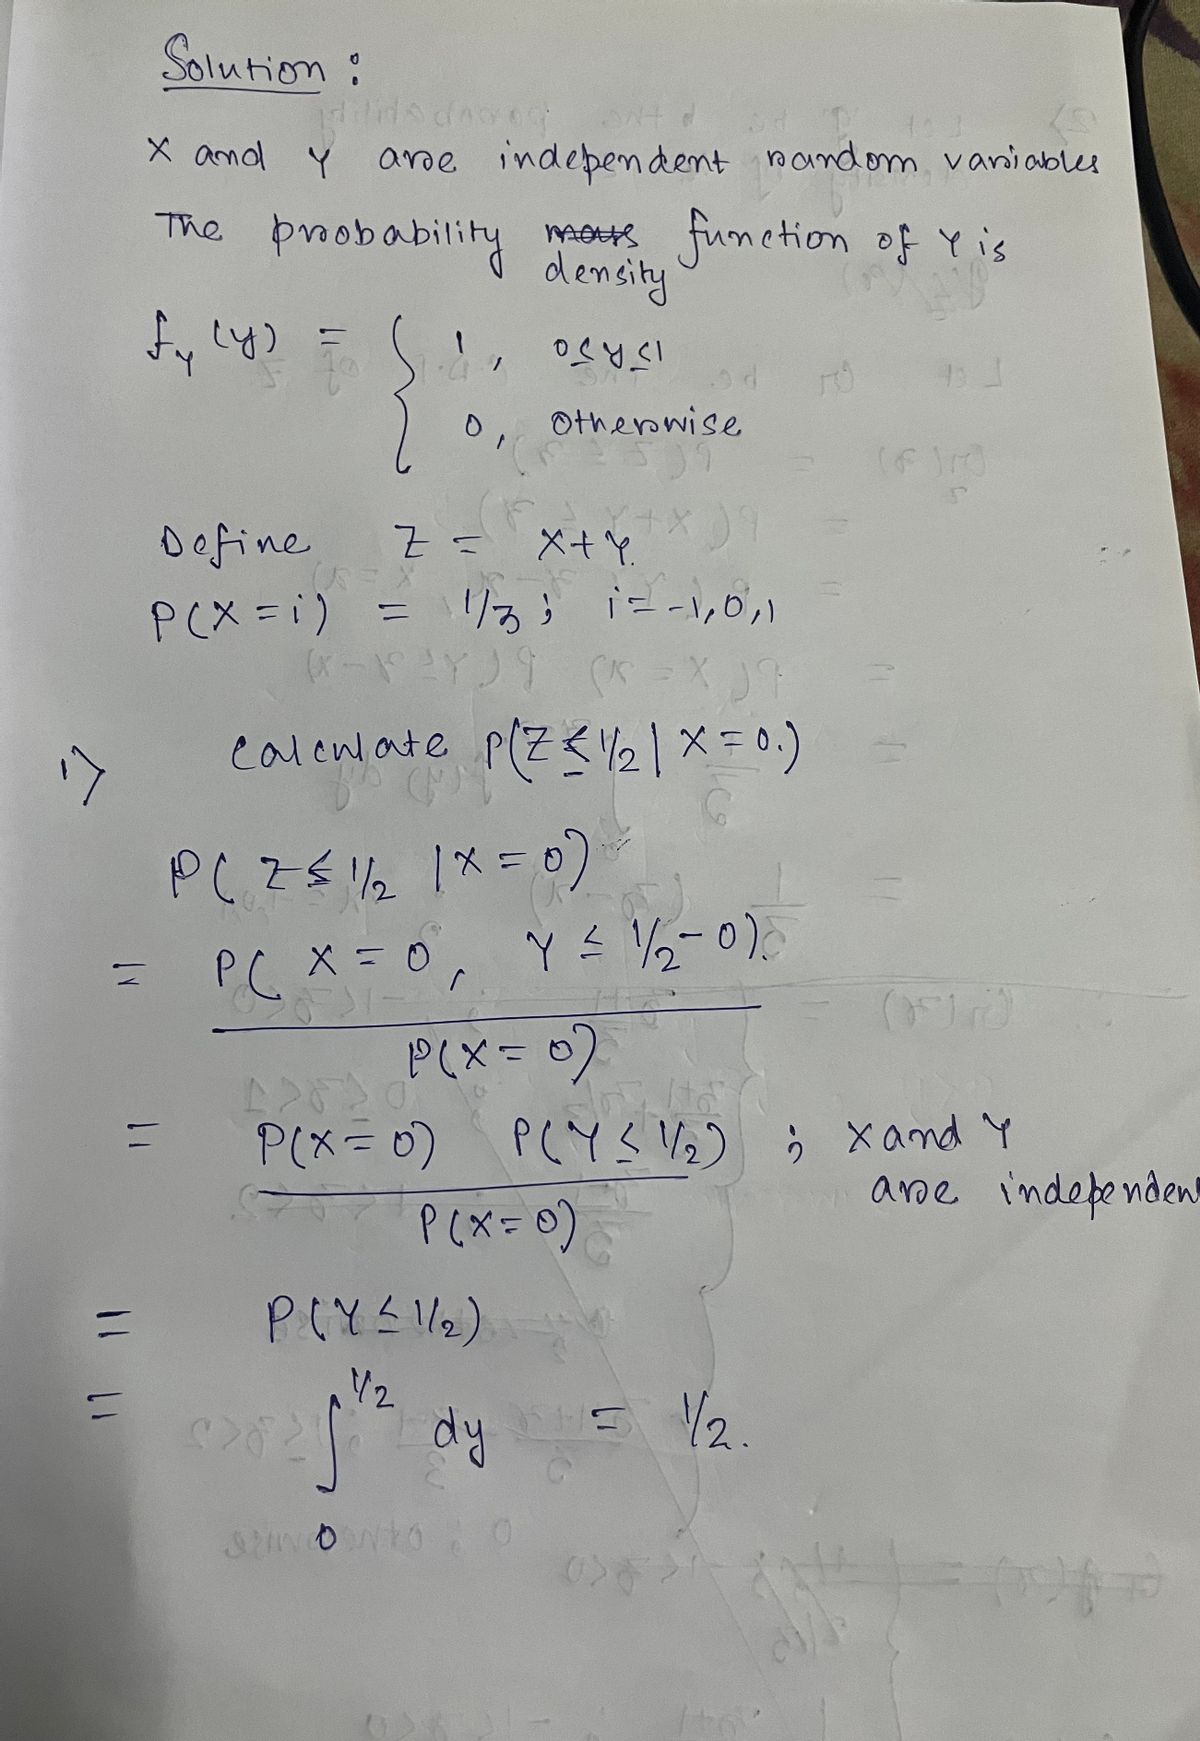 Solution :
X and Y are independent random variables
The probability mass function of Y is
density
f_Y (y) = { 1 , 0≤y≤1
0, otherwise
Define Z = X+Y.
P(X=i) = 1/3 ; i=-1,0,1
1> Calculate P(Z≤1/2 | X=0.)
P( Z≤1/2 | X=0)
= P( X=0, Y ≤ 1/2-0).
P(X=0)
= P(X=0) P(Y≤1/2) ; X and Y
are independen
P(X=0)
= P(Y≤1/2)
= ∫_0^{1/2} dy = 1/2.